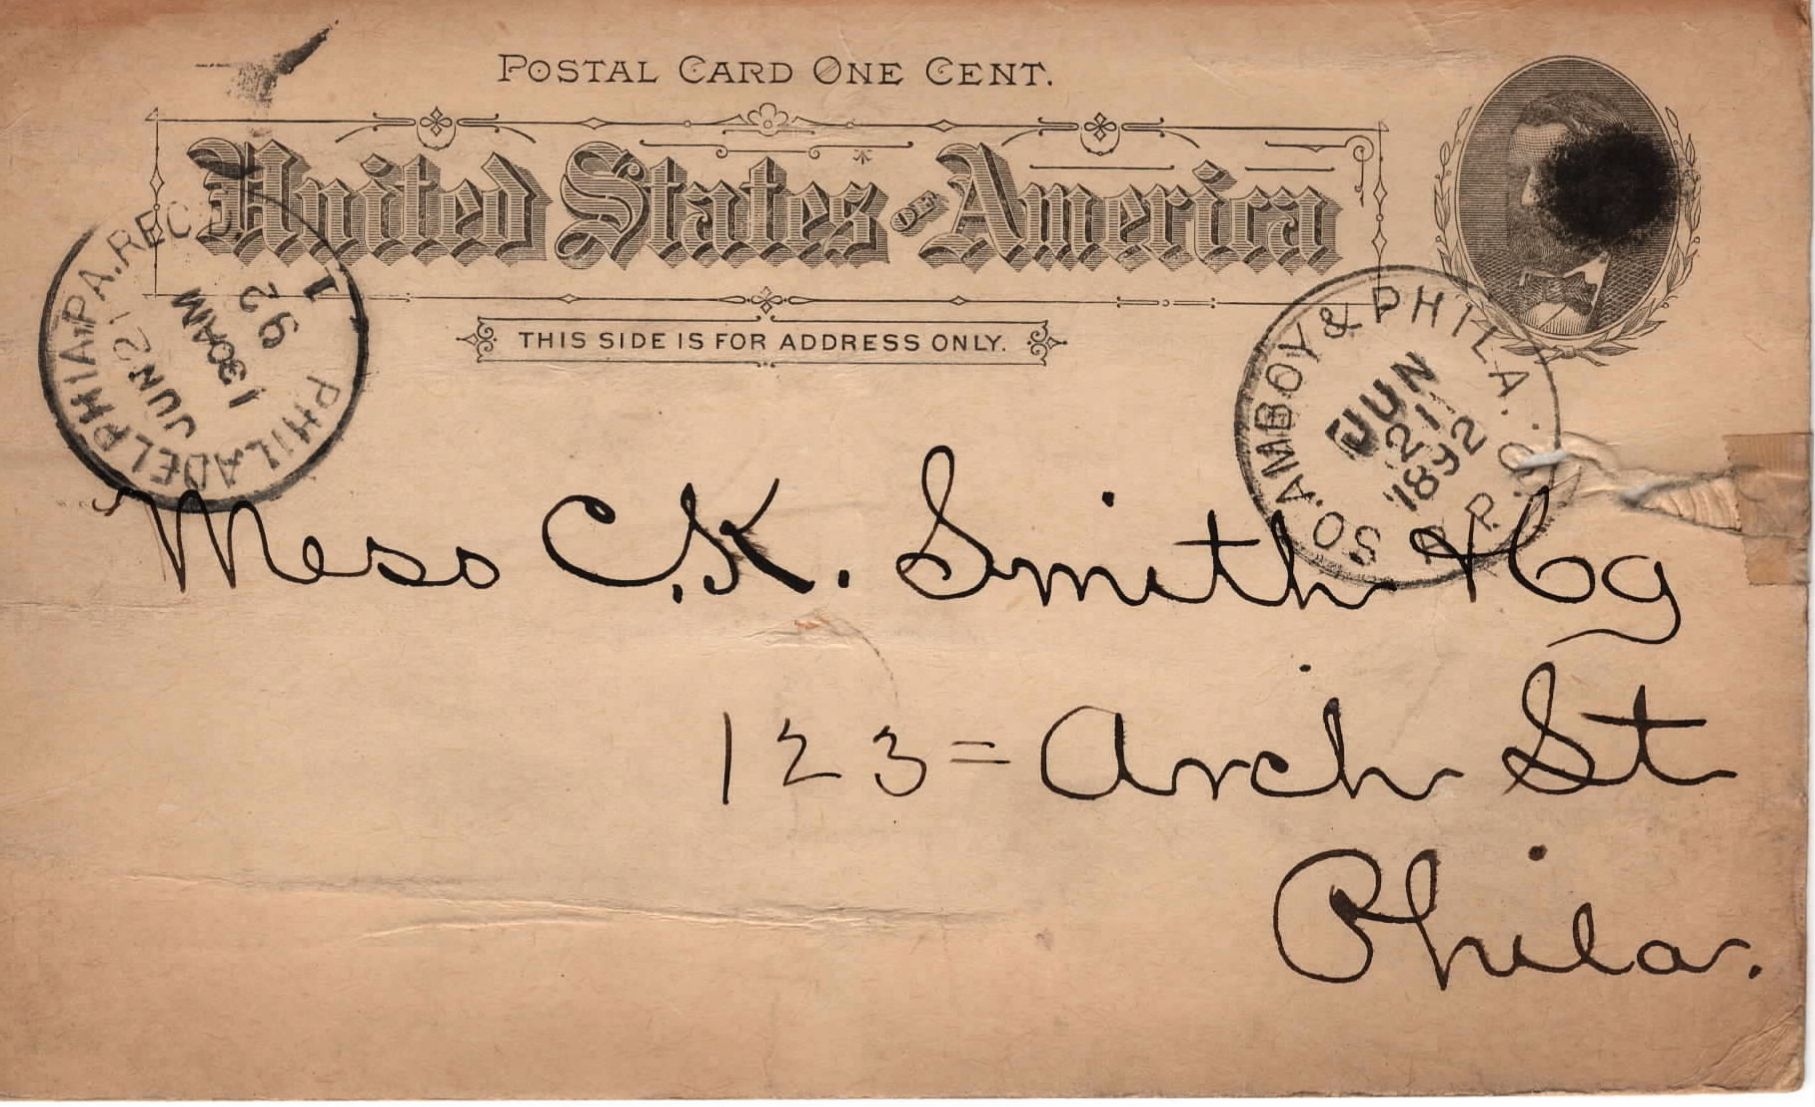 POSTAL CARD ONE CENT.
United States OF America
THIS SIDE IS FOR ADDRESS ONLY.
PHILADELPHIA, PA. REC'D
JUN 21
1 30 AM
92
1
PHILA
SO. AMBOY & PHILA. R.P.O.
JUN
21
1892
Mess C.K. Smith
123 = Arch St
Phila.